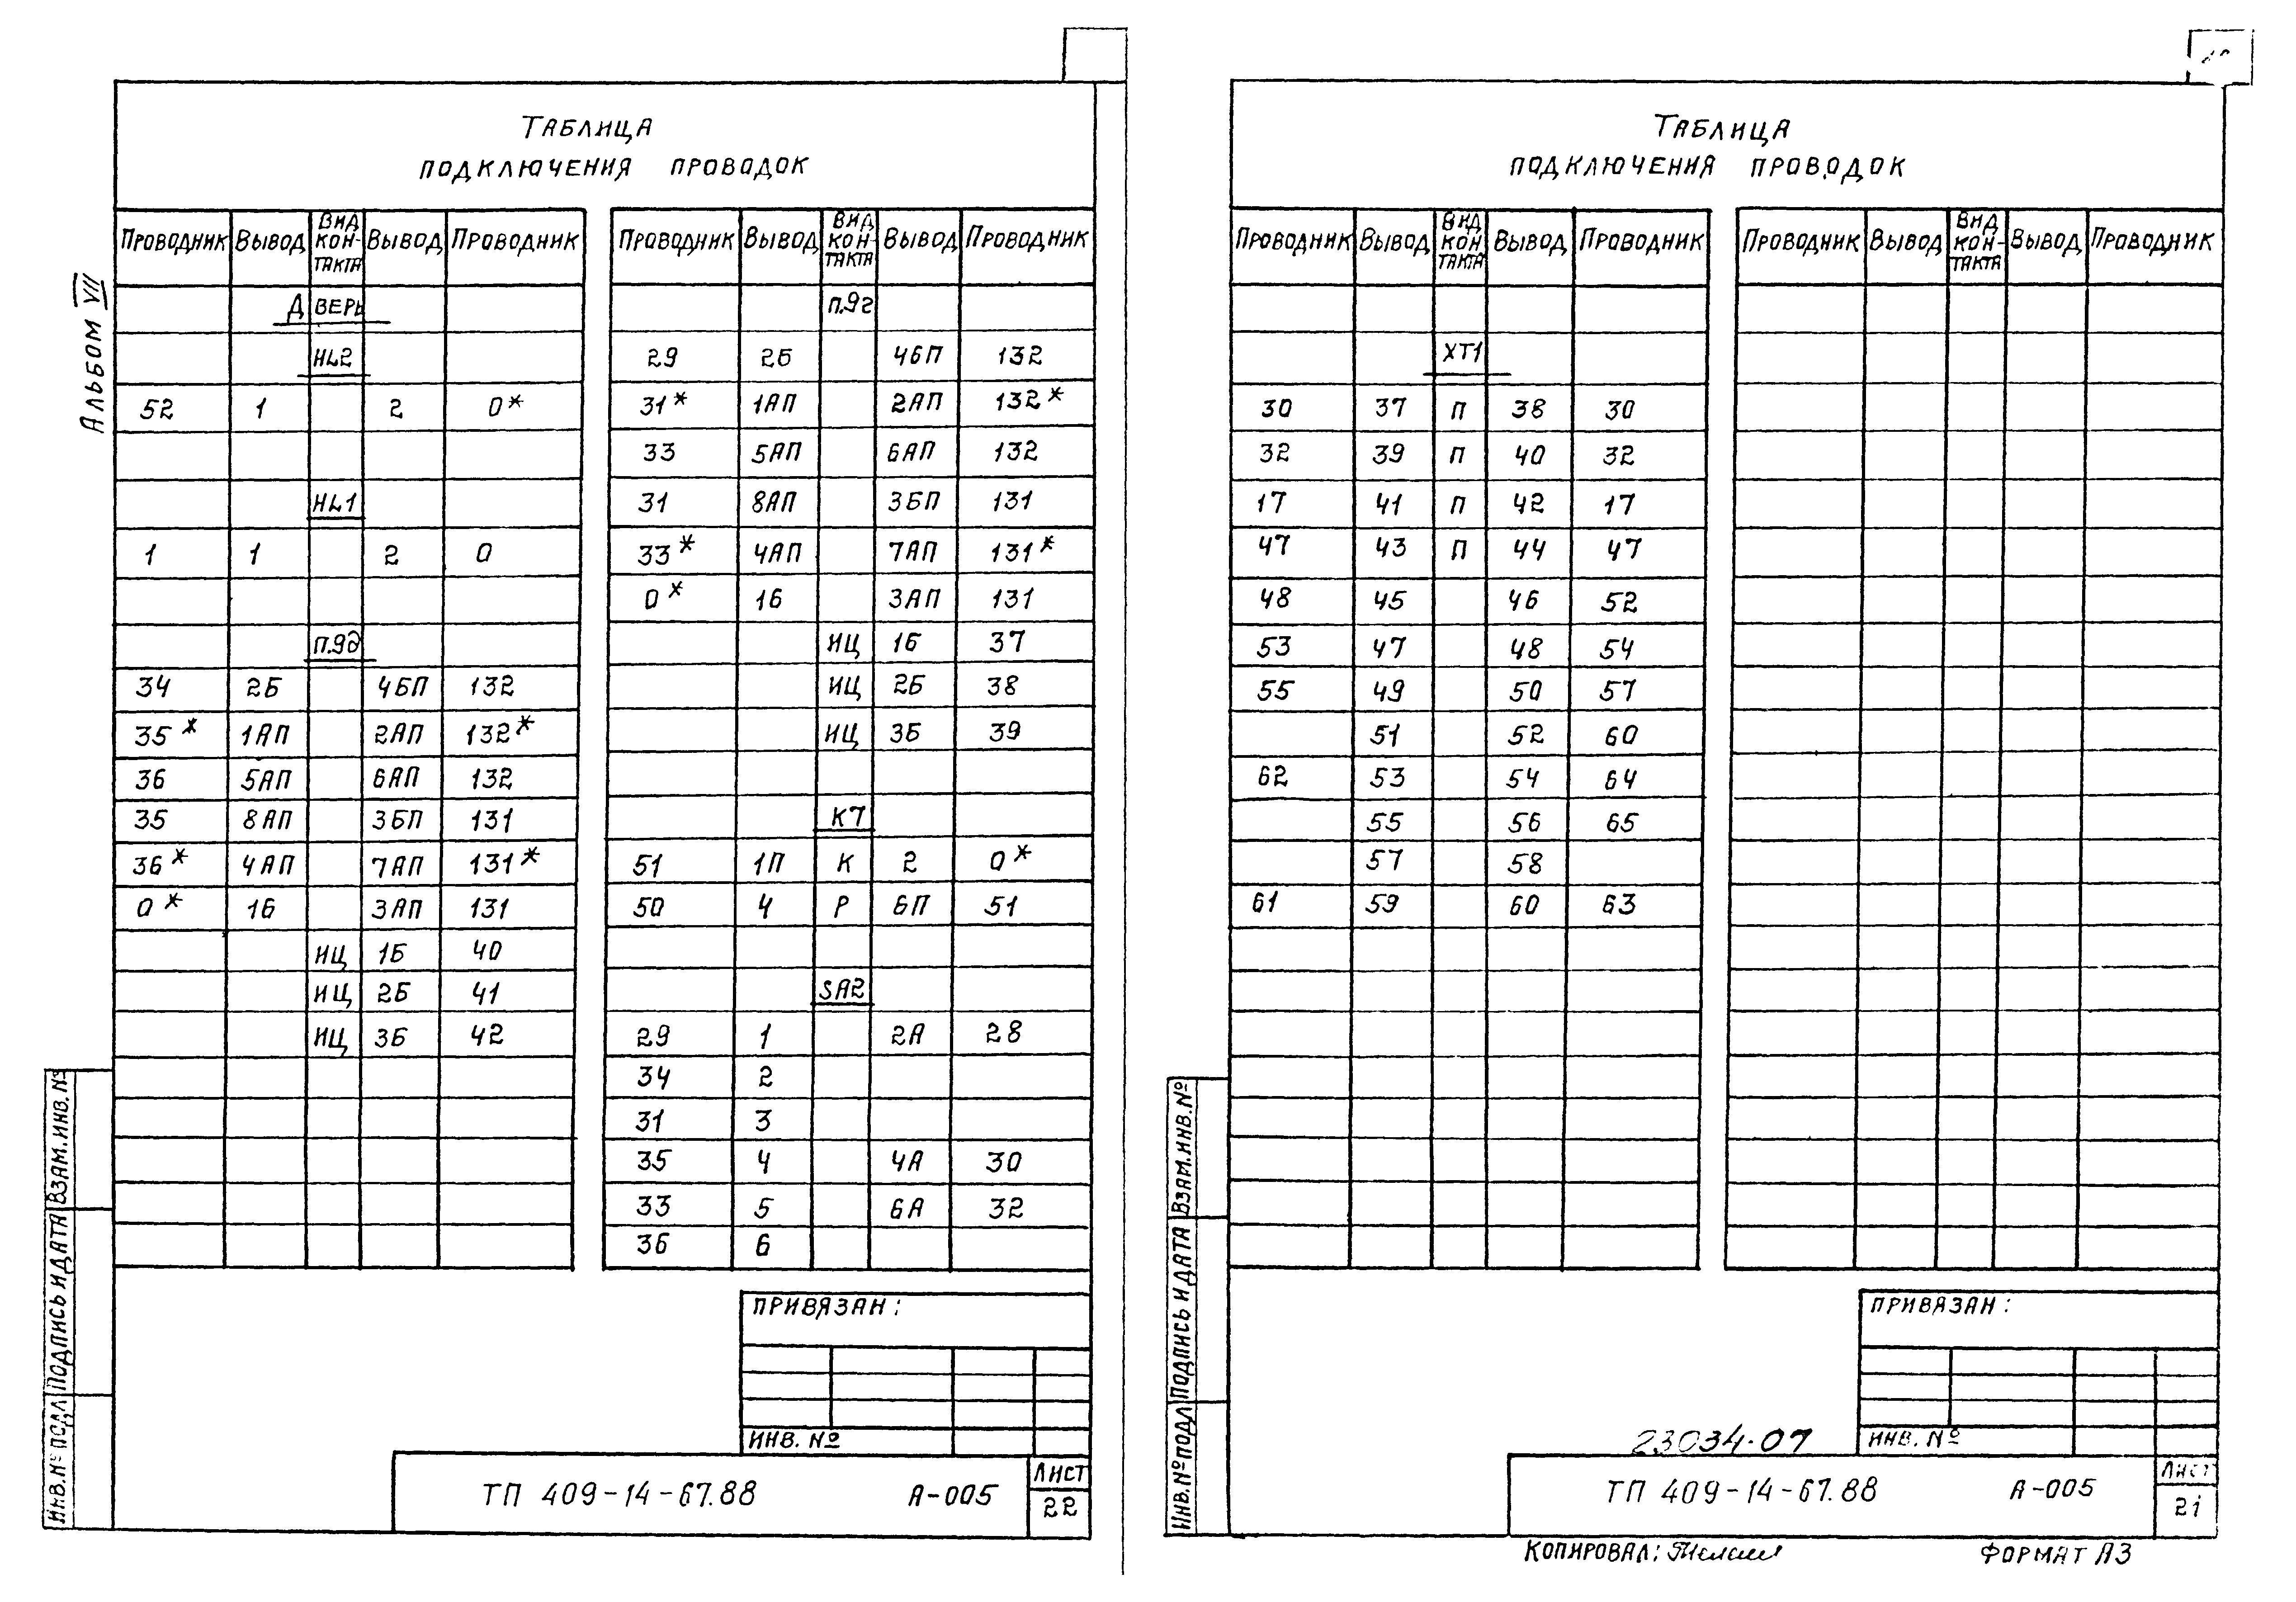 Альбом VII
Таблица
подключения проводок
Проводник Вывод Вид кон- такта Вывод Проводник
Дверь
HL2
52 1 2 0*
HL1
1 1 2 0
п.9д
34 2Б 4БП 132
35* 1АП 2АП 132*
36 5АП 6АП 132
35 8АП 3БП 131
36* 4АП 7АП 131*
0* 1Б 3АП 131
ИЦ 1Б 40
ИЦ 2Б 41
ИЦ 3Б 42
Проводник Вывод Вид кон- такта Вывод Проводник
п.9г
29 2Б 4БП 132
31* 1АП 2АП 132*
33 5АП 6АП 132
31 8АП 3БП 131
33* 4АП 7АП 131*
0* 1Б 3АП 131
ИЦ 1Б 37
ИЦ 2Б 38
ИЦ 3Б 39
К7
51 1П К 2 0*
50 4 Р 6П 51
SA2
29 1 2А 28
34 2
31 3
35 4 4А 30
33 5 6А 32
36 6
Привязан:
Инв. №
ТП 409-14-67.88 А-005
Лист
22
Инв.№ подл Подпись и дата Взам.инв.№
Таблица
подключения проводок
Проводник Вывод Вид кон такта Вывод Проводник
ХТ1
30 37 П 38 30
32 39 П 40 32
17 41 П 42 17
47 43 П 44 47
48 45 46 52
53 47 48 54
55 49 50 57
51 52 60
62 53 54 64
55 56 65
57 58
61 59 60 63
Проводник Вывод Вид кон- такта Вывод Проводник
Привязан:
Инв. №
23034-07
ТП 409-14-67.88 А-005
Лист
21
Инв.№ подл Подпись и дата Взам.инв.№
Копировал:
Формат А3